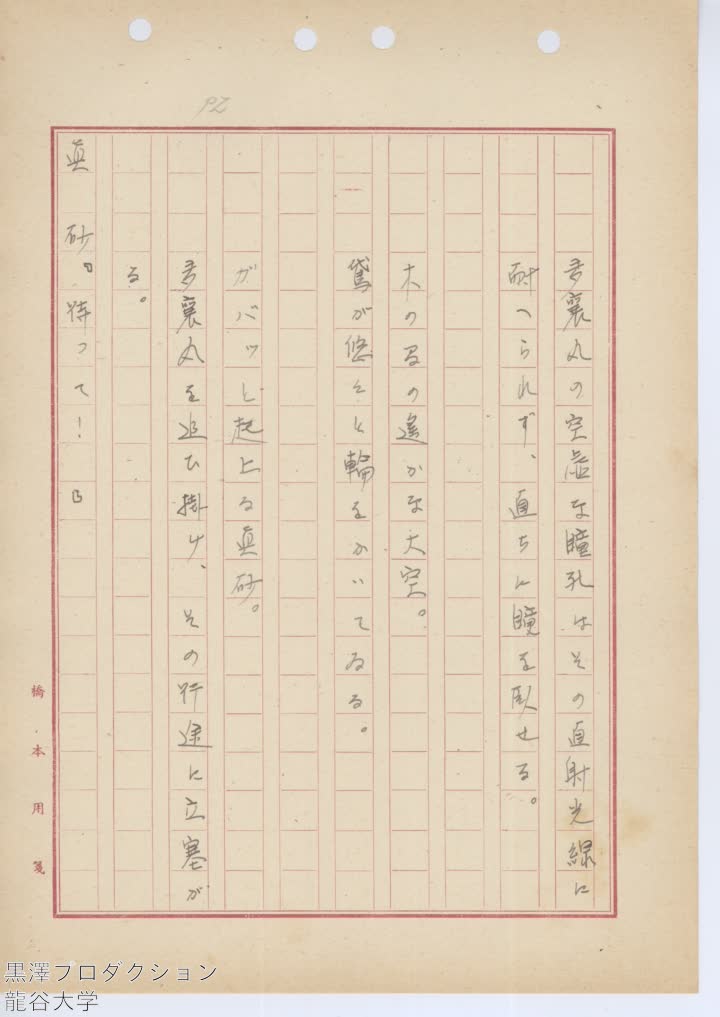 92
多襄丸の空虚な瞳孔はその直射光線に
耐へられず、直ちに瞳を臥せる。
木の間の遙かな大空。
鳶が悠々と輪をかいてゐる。
ガバッと起上る真砂。
多襄丸を追ひ掛け、その行途に立塞が
る。
真砂「待って!」
橋本用箋
黒澤プロダクション
龍谷大学